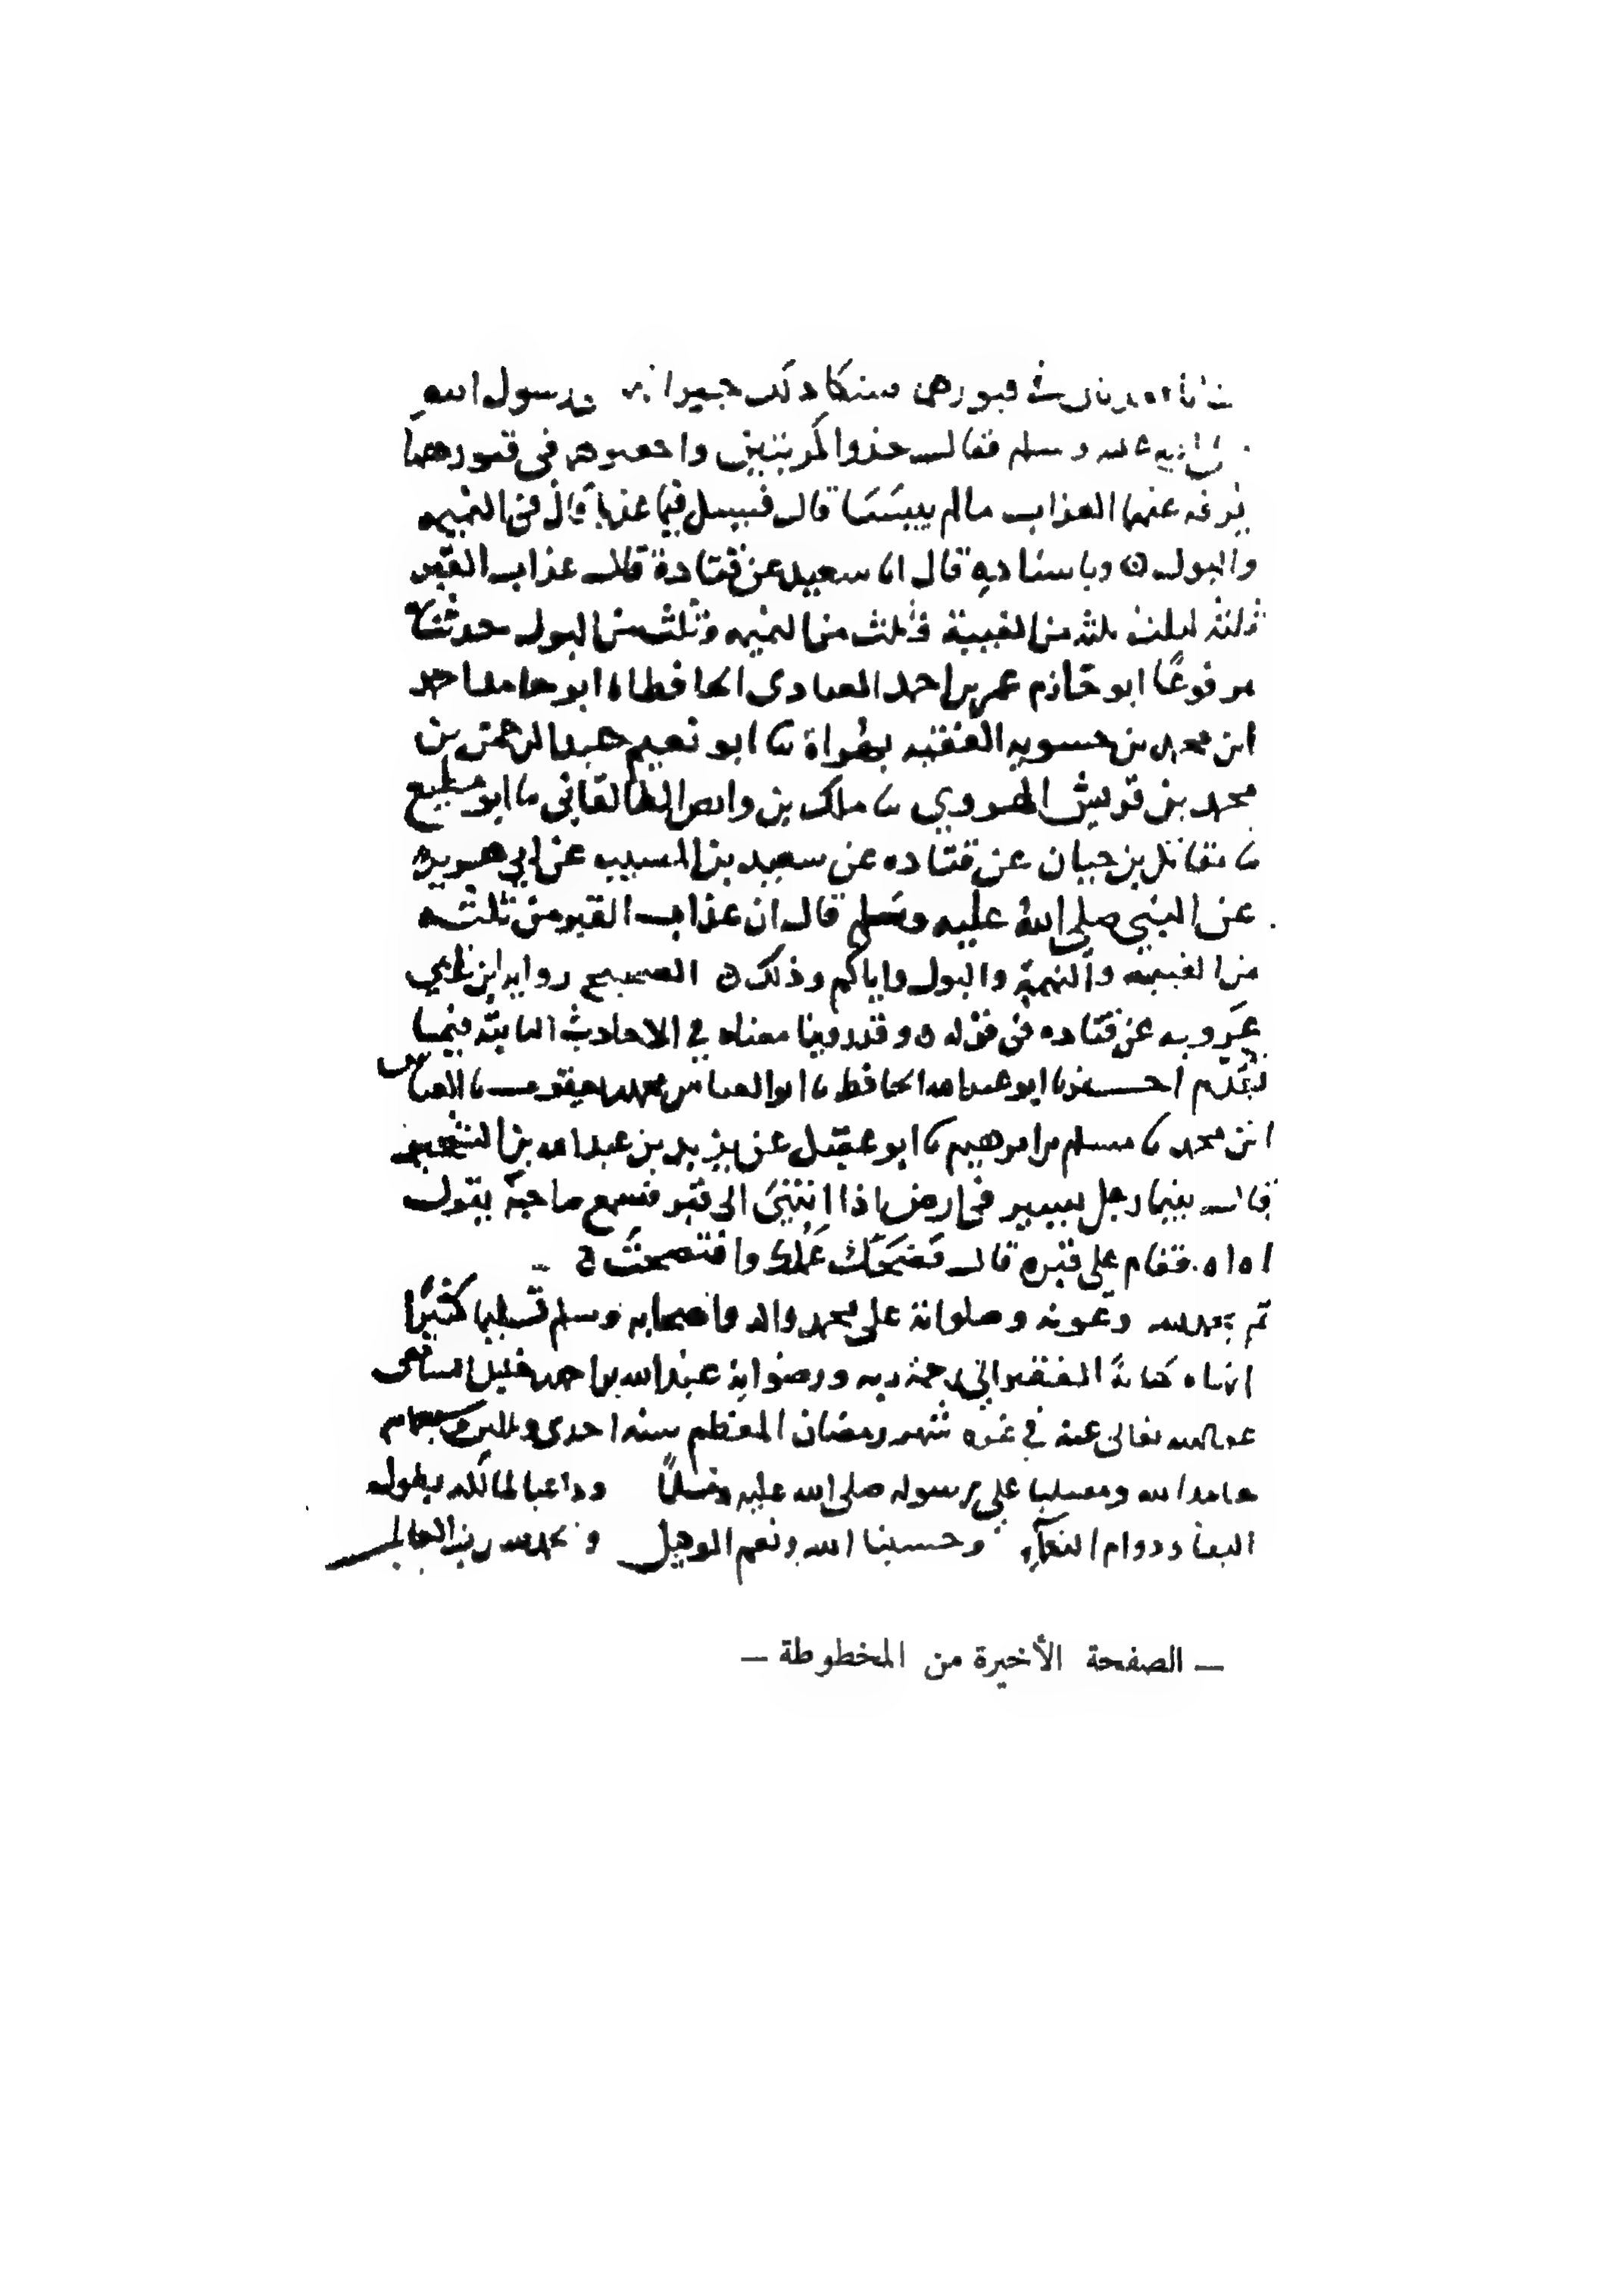 في قبورهن فشكا ذلك جيرانه رسول الله
وسلم فقال خذوا كربتين واجعلوهم في قبورهما
يرفه عنهما العذاب ما لم ييبسا قال فسئل فيما عذبا قال في النميمه
والبول وباسناده قال انا سعيد عن قتادة قال عذاب القبر
ثلثه اثلاث ثلث من الغيبة وثلث من النميمه وثلث من البول حدثناه
مرفوعًا ابو حازم عمر بن احمد العبادوى الحافظ انا ابو حامد احمد
ابن محمد بن حسويه الفقيه بهراة ثنا ابو نعيم عبد الرحمن بن
محمد بن قريش الهروي ثنا ملك بن الطالقاني ثنا ابو مطيع
ثنا مقاتل بن حيان عن قتاده عن سعيد بن المسيب عن ابي هريره
عن النبي صلى الله عليه وسلم قال ان عذاب القبر من ثلثه
من الغيبه والنميمة والبول واياكم وذلك ن الصحيح روايه ابن ابي
عروبه عن قتاده من قوله ن وقد روينا معناه في الاحاديث الثابته فيما
تقدم اخبرنا ابو عبد الله الحافظ ثنا ابو العباس محمد بن يعقوب ثنا العباس
ابن محمد ثنا مسلم بن ابرهيم ثنا ابو عقيل عن يزيد بن عبد الله بن الشخير
قال بينما رجل يسير في ارض اذا انتهى الى قبر فسمع صاحبه يقول
اه اه فقام على قبره قال فضحك عملك وافتضحت ن
تم بحمد الله وعونه وصلواته على محمد واله واصحابه وسلم تسليما كثيرًا
انهاه كتابةً الفقير الى رحمة ربه ورضوانه عبد الله بن احمد خليل الشافعى
عفا الله تعالى عنه في غره شهر رمضان المعظم سنه احدى وثلثين
حامدا لله ومصليا على رسوله صلى الله عليه وسلم وداعيا لمالكه بطول
البقا ودوام النعمآء وحسبنا الله ونعم الوكيل والحمد لله رب العالمين
— الصفحة الأخيرة من المخطوطة —